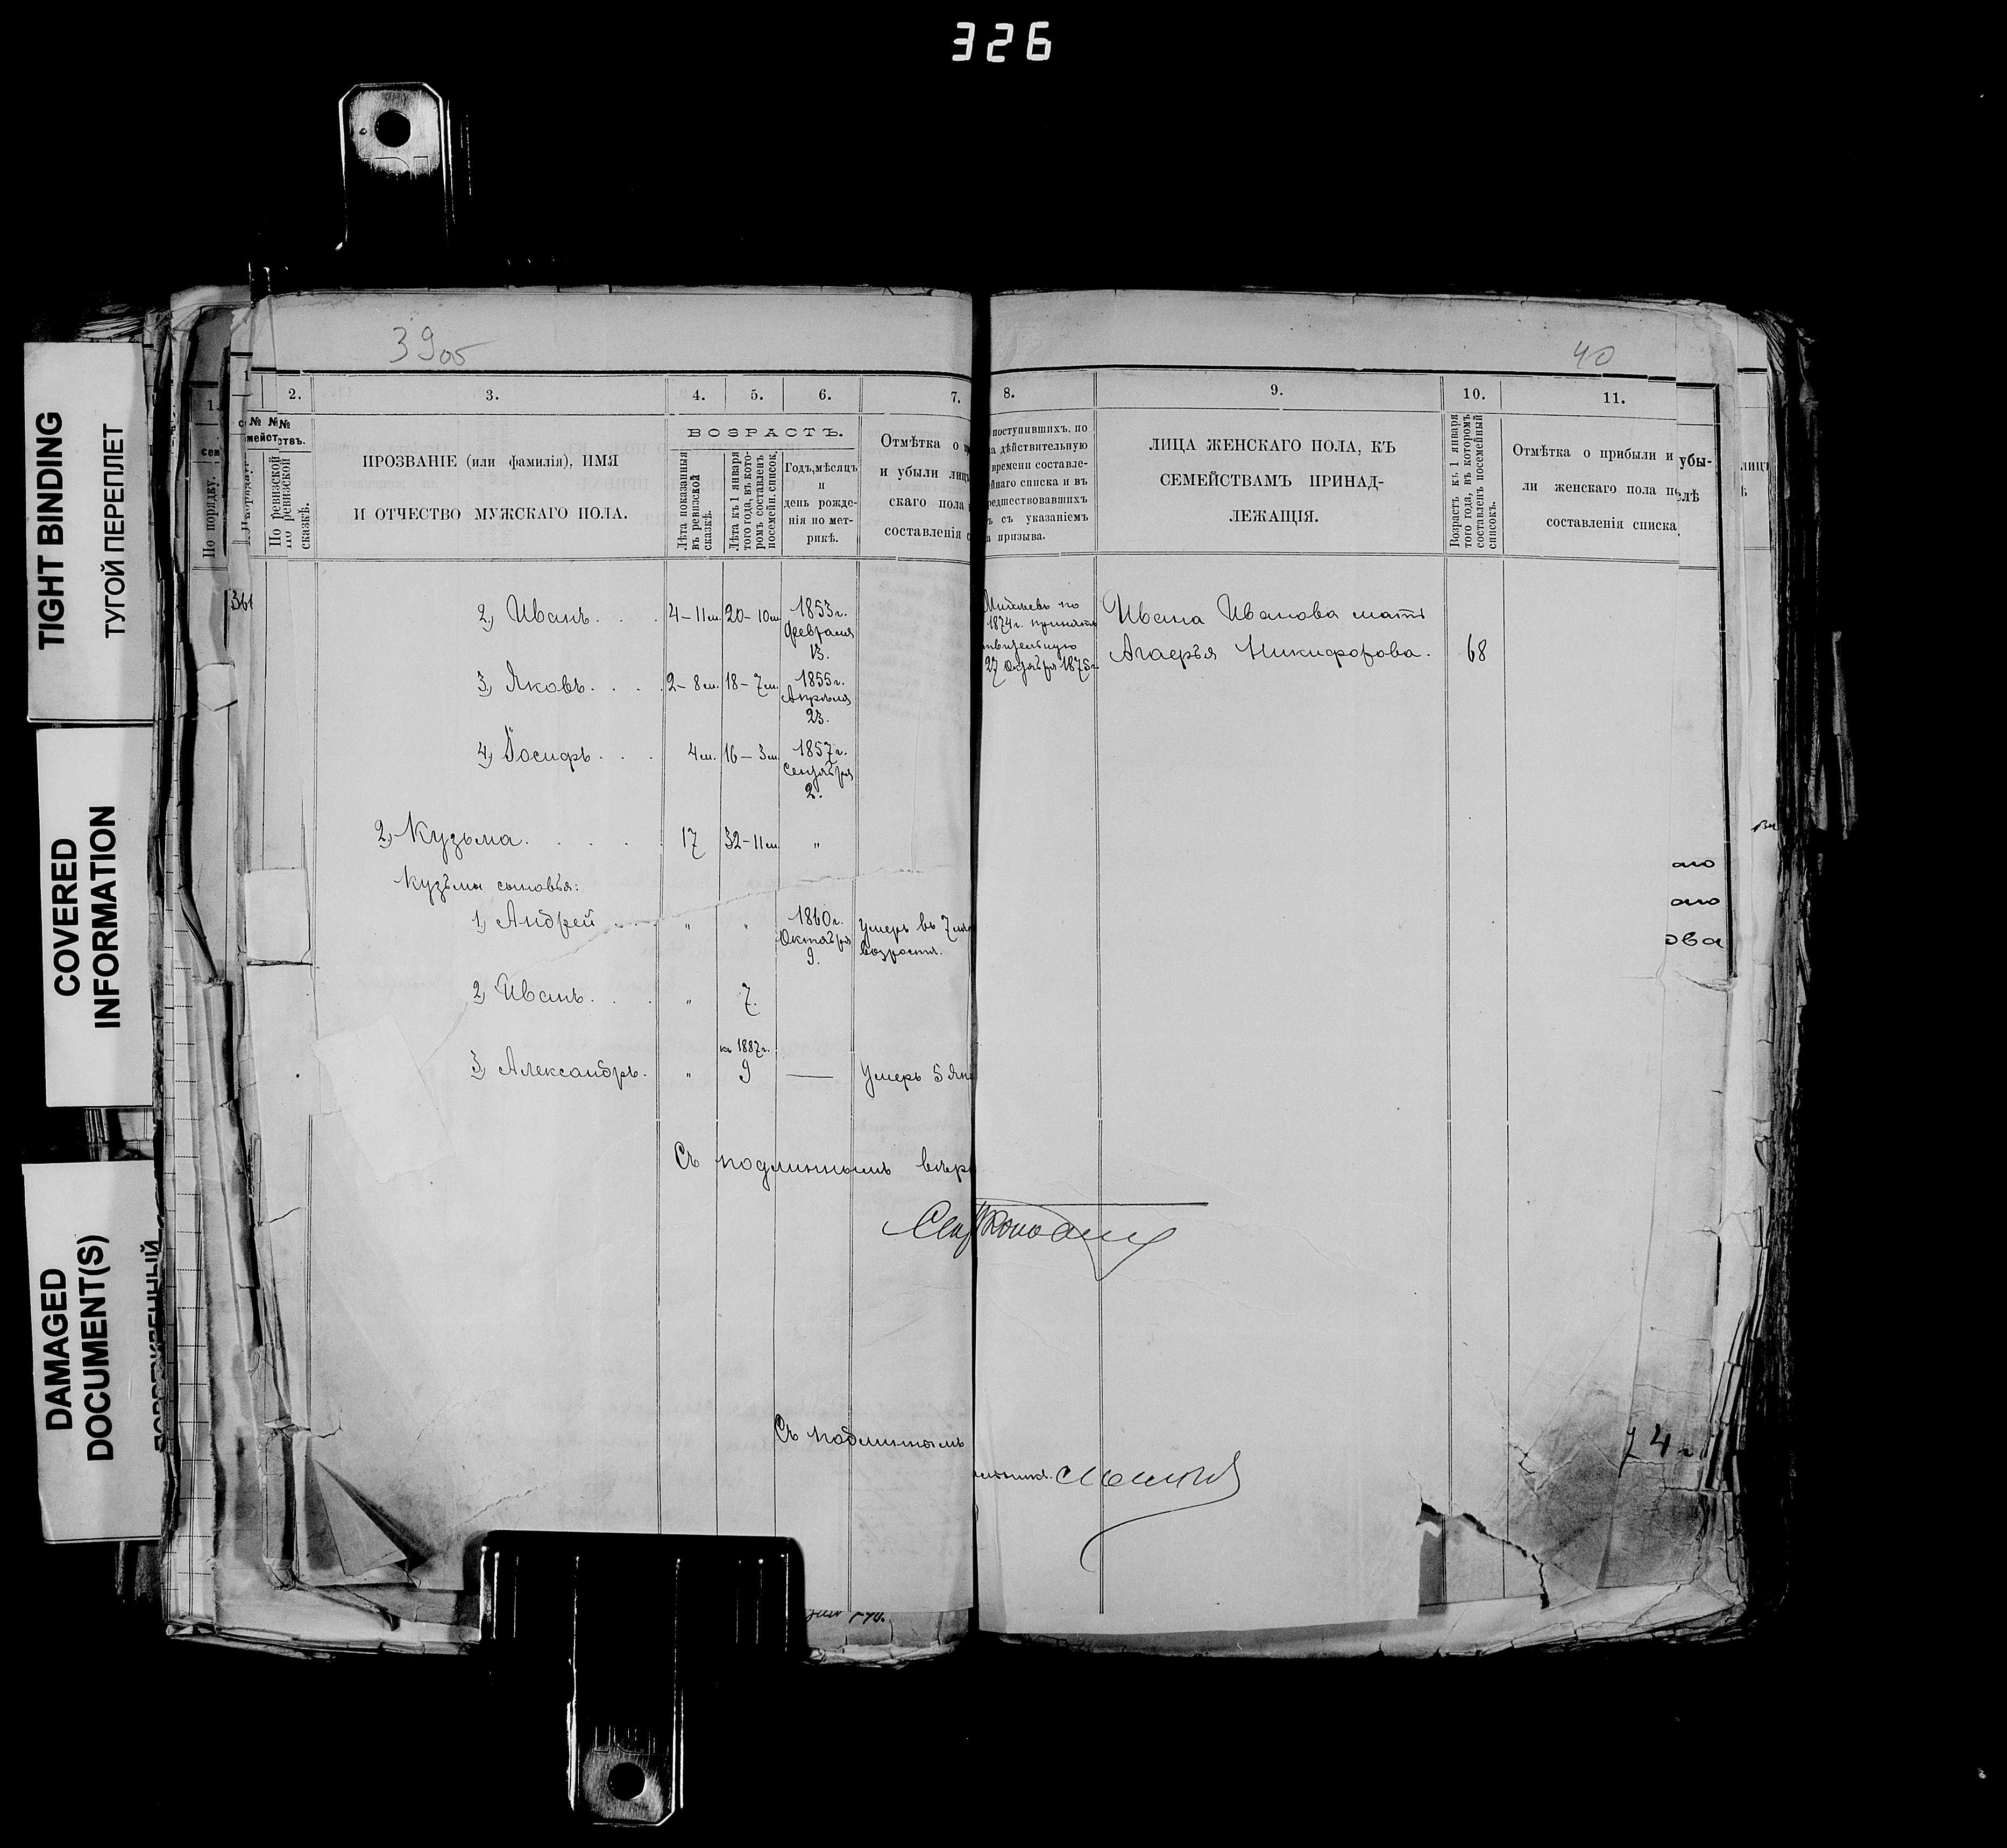 326
TIGHT BINDING
ТУГОЙ ПЕРЕПЛЕТ
COVERED
INFORMATION
DAMAGED
DOCUMENT(S)
39об
1. 2. 3. 4. 5. 6. 7.
По порядку.
По ревизской сказкѣ.
ПРОЗВАНІЕ (или фамилія), ИМЯ
И ОТЧЕСТВО МУЖСКАГО ПОЛА.
ВОЗРАСТЪ.
Лѣта показанныя
въ ревизской
сказкѣ.
Лѣта къ 1 января
того года, въ кото-
ромъ составленъ
посемейн. список.
Годъ, мѣсяцъ
и
день рожде-
нія по мет-
рикѣ.
Отмѣтка о
и убыли лиц
скаго пола
составленія
2, Иванъ. . . 4-11м. 20-10м. 1853г.
Февраля
13.
3, Яковъ. . . . 2-8м. 18-7м. 1855г.
Апрѣля
23.
4, Іосифъ. . . 4м. 16-3м. 1857г.
Сентября
2.
2, Кузьма. . . . . 17 32-11м. "
Кузьмы сыновья:
1, Андрей . . . " " 1860г.
Октября
9.
Умеръ въ 7
возраста.
2, Иванъ. . . " 7.
къ 1887г.
3, Александръ. " 9 — Умеръ 5 Ян
Съ подлиннымъ вѣр
Съ подлиннымъ
40
8. 9. 10. 11.
поступившихъ по
а дѣйствительную
времени составле-
йнаго списка и въ
редшествовавшихъ
ъ съ указаніемъ
а призыва.
ЛИЦА ЖЕНСКАГО ПОЛА, КЪ
СЕМЕЙСТВАМЪ ПРИНАД-
ЛЕЖАЩІЯ.
Возрастъ къ 1 января
того года, въ которомъ
составленъ посемейный
списокъ.
Отмѣтка о прибыли и убы-
ли женскаго пола по
составленія списка
1874г. принятъ
27 Октября 1875г.
Ивана Иванова мать
Агафья Никифорова. 68
ано
ано
ова
74г.